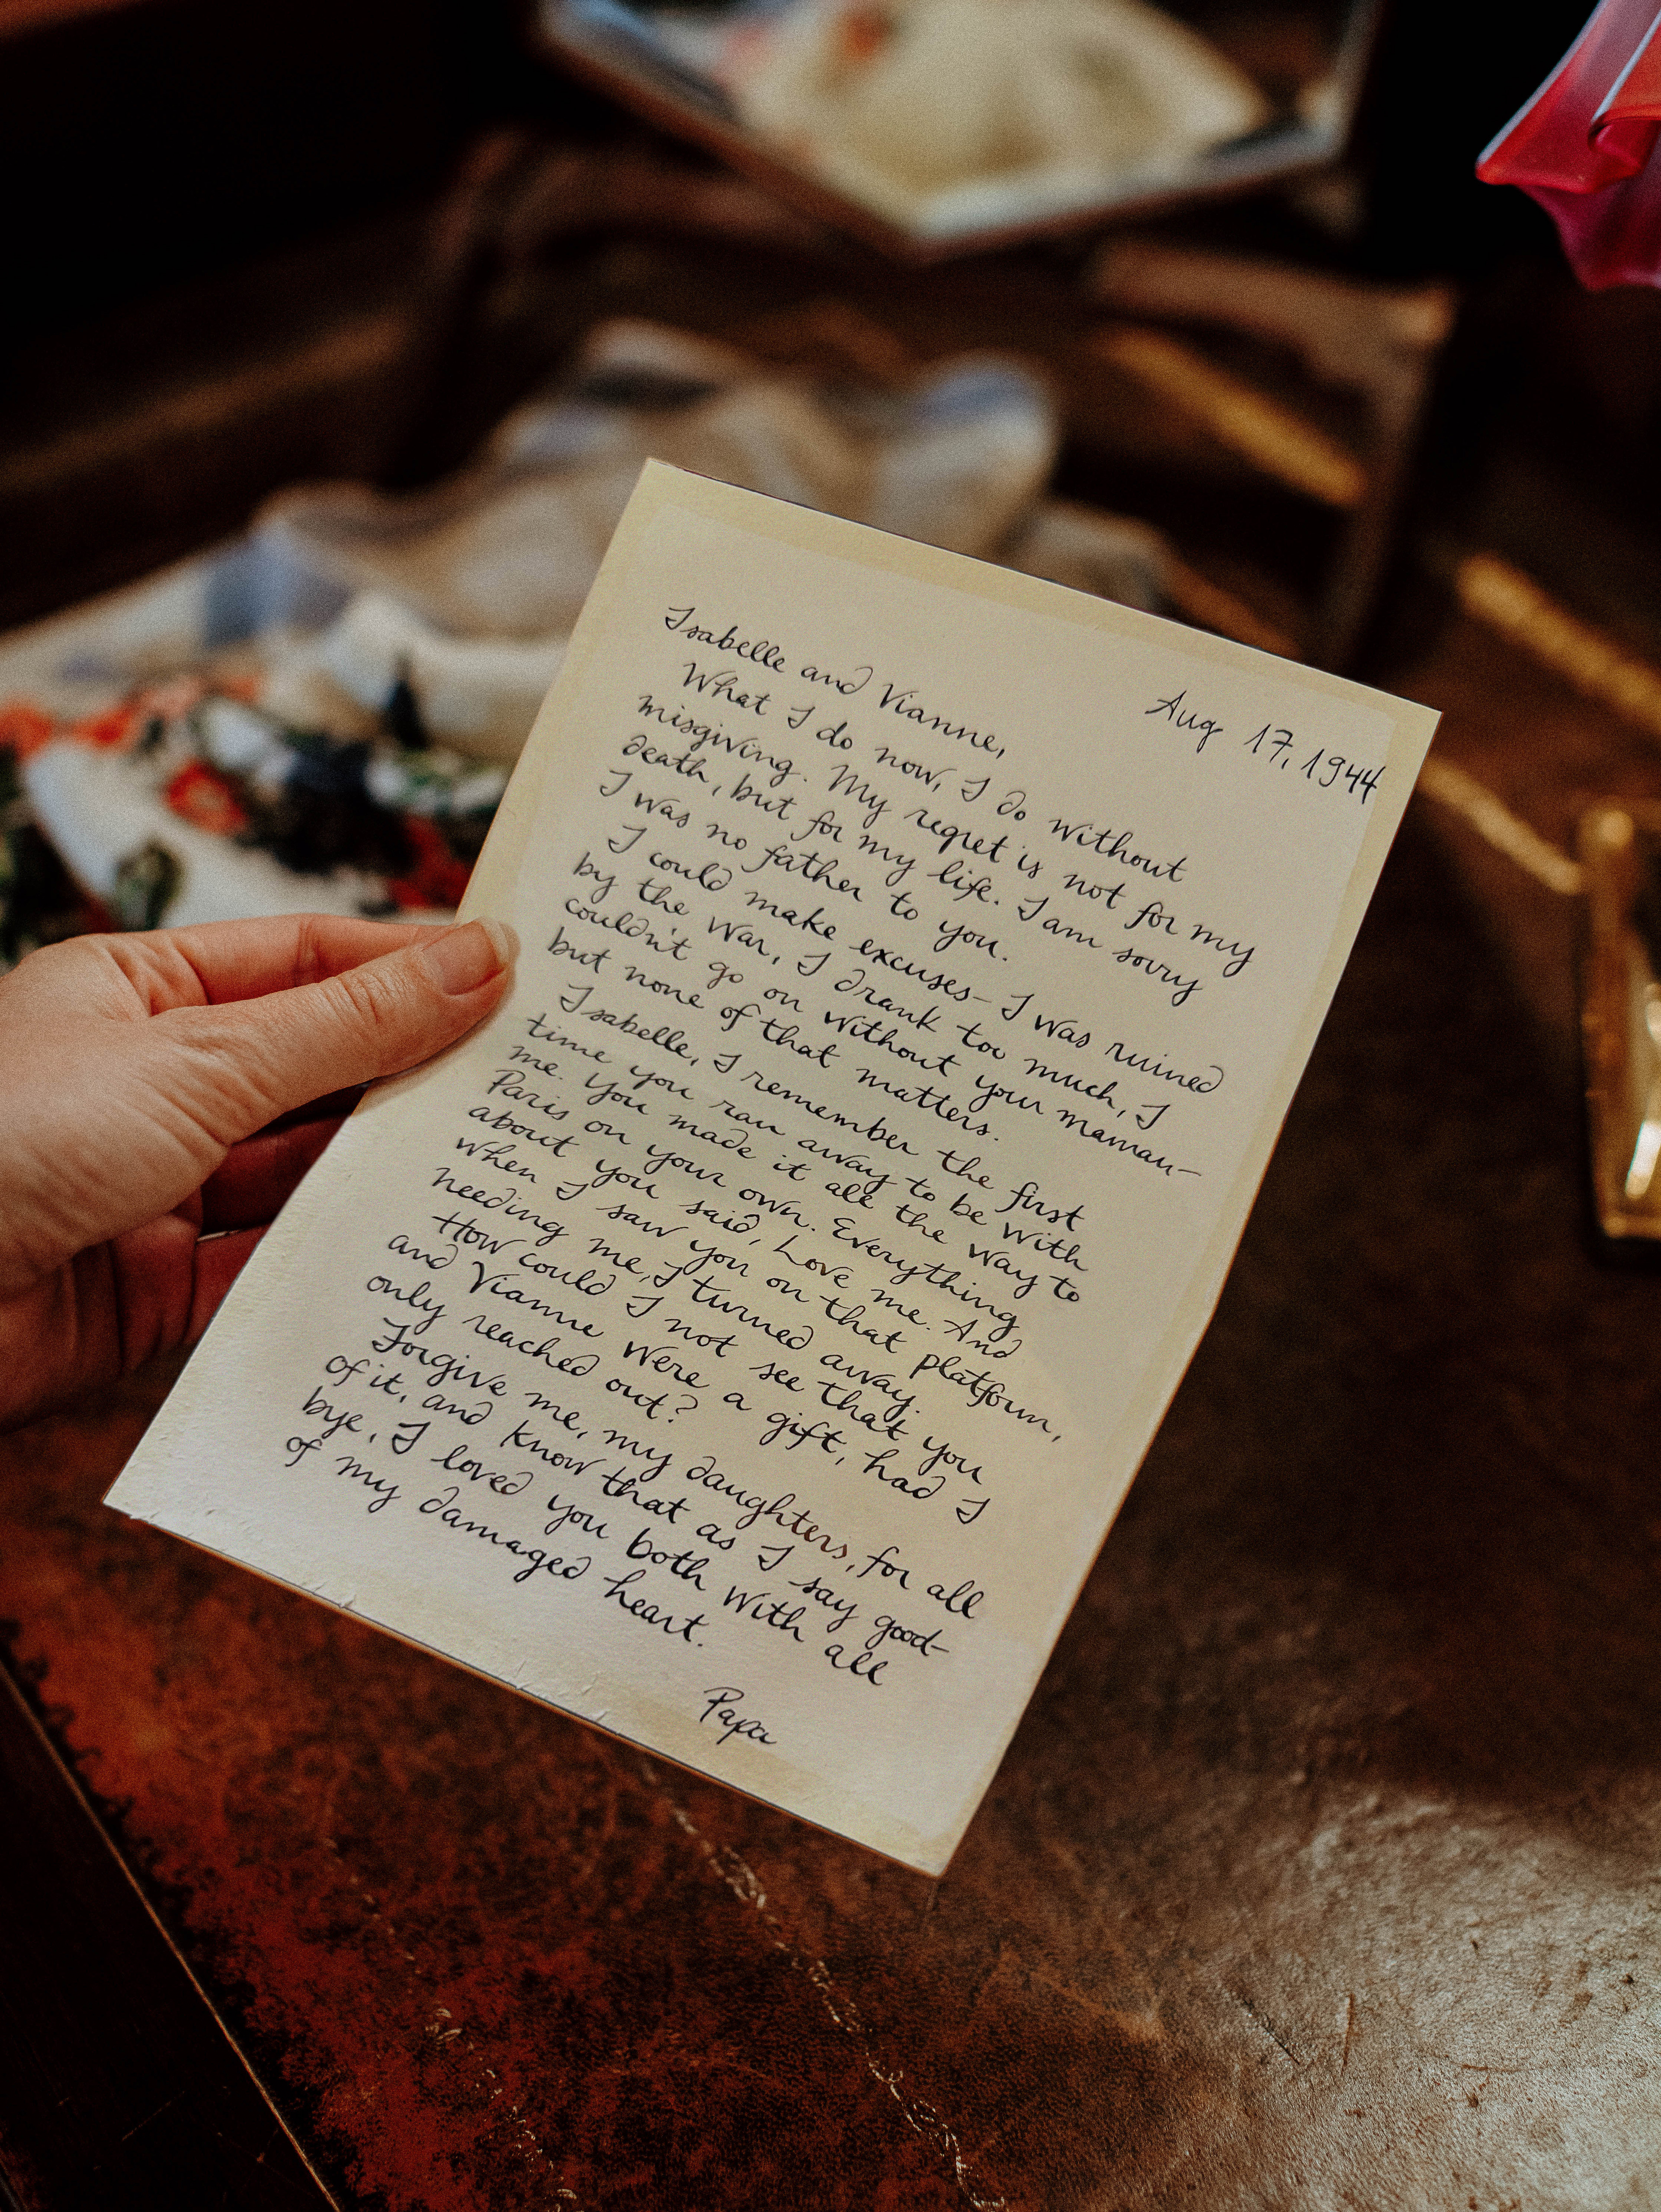 Aug 17, 1944
Isabelle and Vianne,
What I do now, I do without
misgiving. My regret is not for my
death, but for my life. I am sorry
I was no father to you.
I could make excuses- I was ruined
by the war, I drank too much, I
couldn't go on without your maman-
but none of that matters.
Isabelle, I remember the first
time you ran away to be with
me. You made it all the way to
Paris on your own. Everything
about you said, Love me. And
when I saw you on that platform,
needing me, I turned away.
How could I not see that you
and Vianne were a gift, had I
only reached out?
Forgive me, my daughters, for all
of it, and know that as I say good-
bye, I loved you both with all
of my damaged heart.
Papa